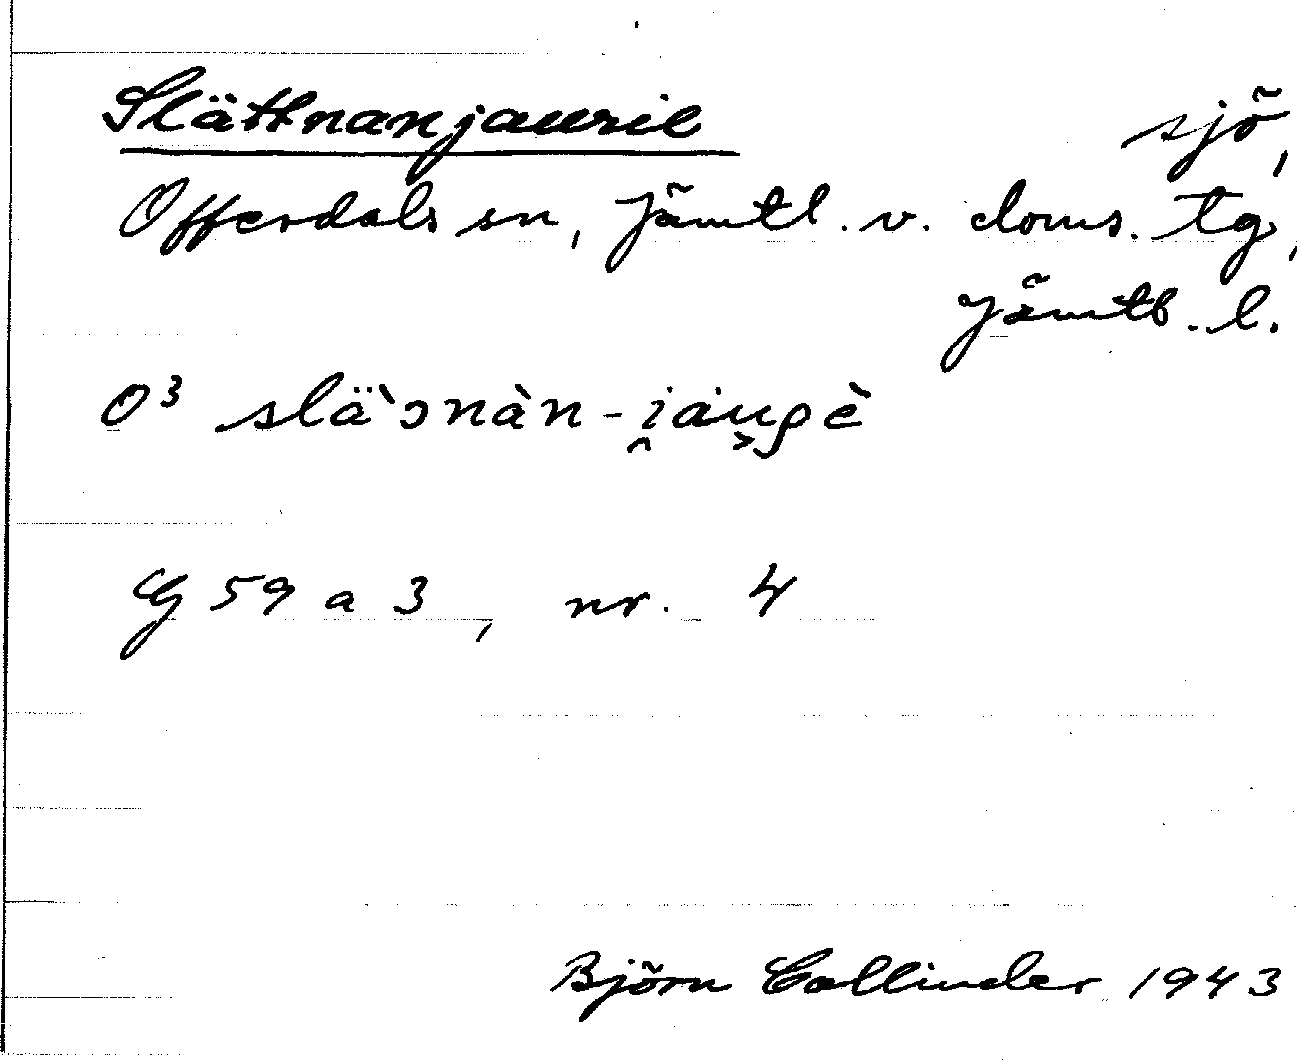 Slättnanjaurie sjö,
Offerdals sn, Jämtl. v. doms. tg,
Jämtl. l.
O³ slä̀ɔnàn-i̯äu̯ρè
G 59 a 3, nr. 4
Björn Collinder 1943